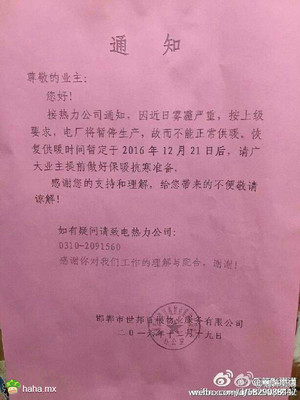 通 知
尊敬的业主：
您好！
按热力公司通知，因近日雾霾严重，按上级
要求，电厂将暂停生产，故而不能正常供暖。恢
复供暖时间暂定于 2016 年 12 月 21 日后，请广
大业主提前做好保暖抗寒准备。
感谢您的支持和理解，给您带来的不便敬请
谅解！
如有疑问请致电热力公司：
0310-2091560
感谢你对我们工作的理解与配合，谢谢！
邯郸市世邦 物业服务有限公司
二〇一六年十二月十九日
haha.mx